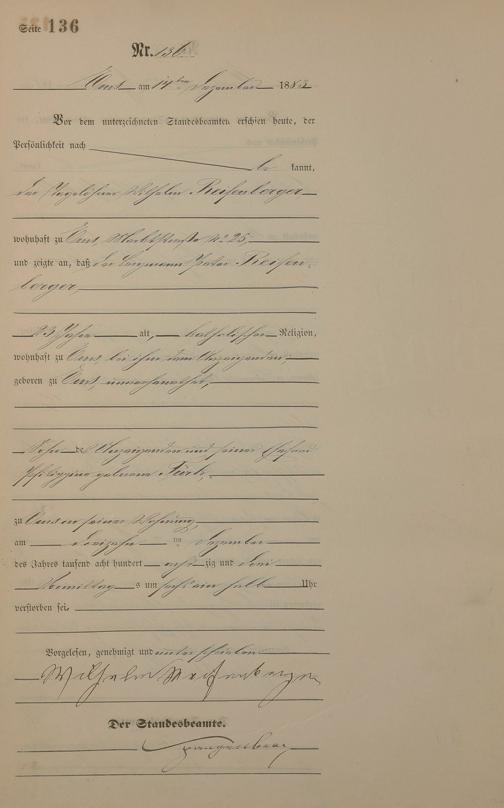 Seite 136
Nr. 136.
Ems am 14ten Dezember 1883
Vor dem unterzeichneten Standesbeamten erschien heute, der
Persönlichkeit nach
be kannt,
der Tagelöhner Wilhelm Reifenberger
wohnhaft zu Ems, Marktstraße No 25,
und zeigte an, daß der Bergmann Peter Reifen-
berger
23 Jahre alt, katholischer Religion,
wohnhaft zu Ems, bei ihm dem Anzeigenden,
geboren zu Ems, unverheirathet,
Sohn des Anzeigenden und seiner Ehefrau
Philippine geborene
zu Ems in seiner Wohnung,
am dreizehn ten Dezember
des Jahres tausend acht hundert acht zig und drei
Vormittags um halb Uhr
verstorben sei.
Vorgelesen, genehmigt und unterschrieben
Wilhelm Reifenberger
Der Standesbeamte.